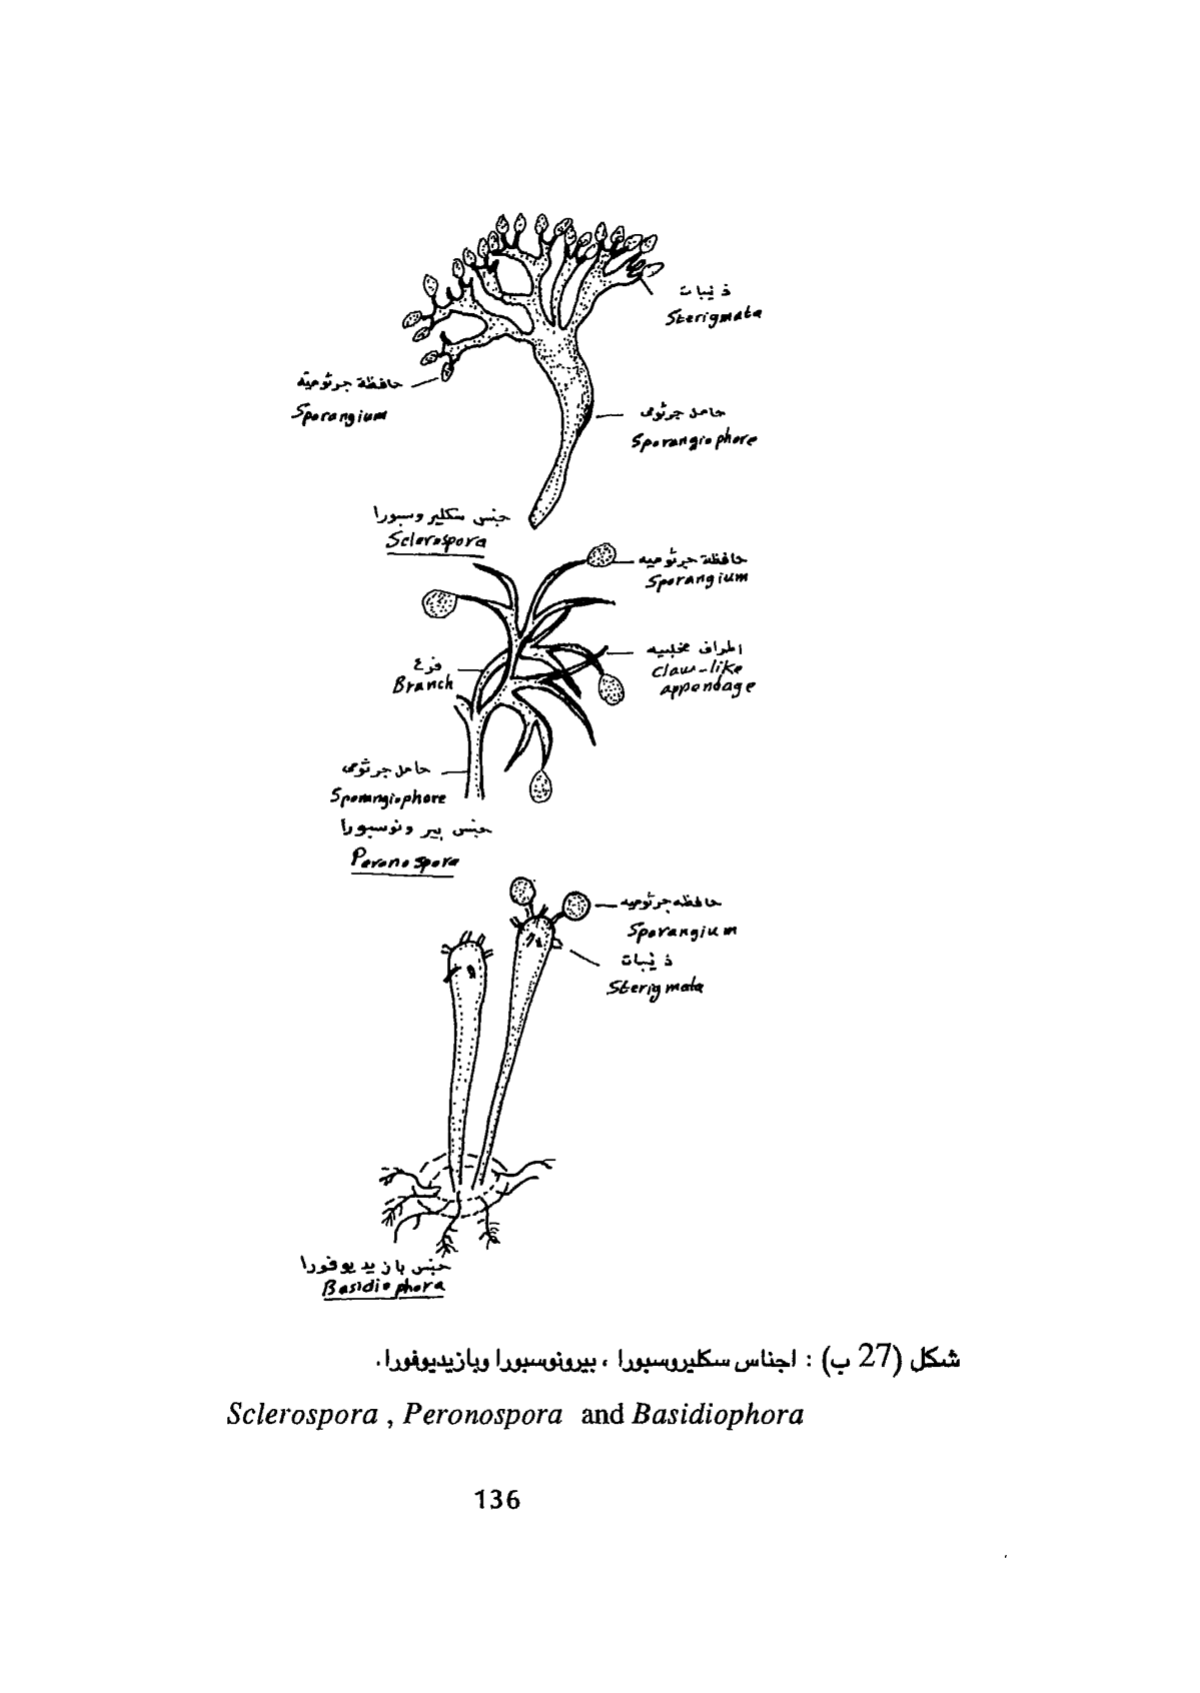 ذنيبات
Sterigmata
حافظة جرثوميه
Sporangium
حامل جرثومى
Sporangiophore
جنس سكليروسبورا
Sclerospora
حافظة جرثوميه
Sporangium
اطراف مخلبيه
Claw-like
appendage
فرع
Branch
حامل جرثومى
Sporangiophore
جنس بيرونوسبورا
Peronospora
حافظه جرثوميه
Sporangium
ذنيبات
Sterigmata
جنس بازيديوفورا
Basidiophora
شكل (27 ب) : اجناس سكليروسبورا ، بيرونوسبورا وبازيديوفورا.
Sclerospora , Peronospora and Basidiophora
136